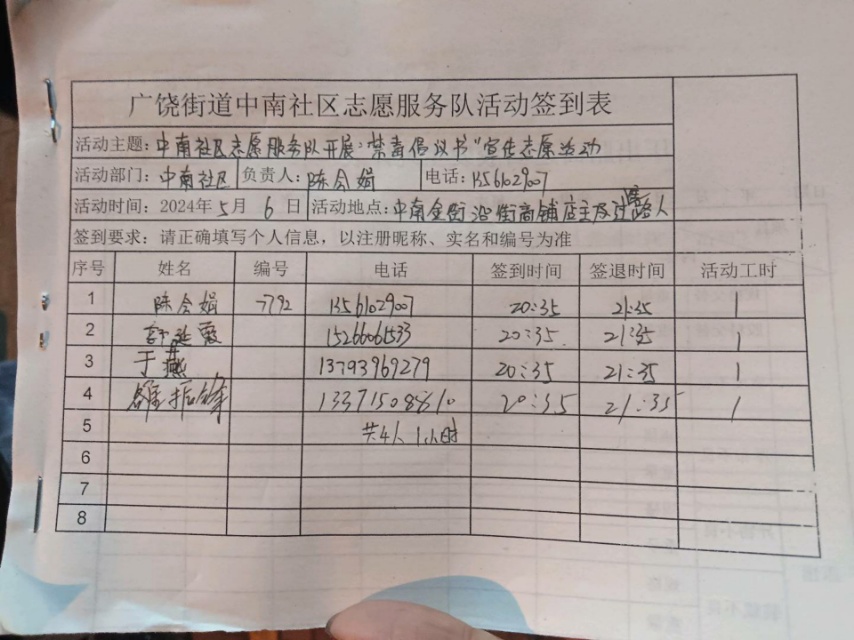 广饶街道中南社区志愿服务队活动签到表
活动主题：中南社区志愿服务队开展"禁毒倡议书"宣传志愿活动
活动部门：中南社区 负责人：陈会娟 电话：13561029007
活动时间：2024年5月6日 活动地点：中南金街沿街商铺店主及过路人
签到要求：请正确填写个人信息，以注册昵称、实名和编号为准
序号 姓名 编号 电话 签到时间 签退时间 活动工时
1 陈会娟 7792 13561029007 20:35 21:35 1
2 15266061533 20:35 21:35 1
3 于燕 13793969279 20:35 21:35 1
4 13371508810 20:35 21:35 1
5 共4人 1小时
6
7
8